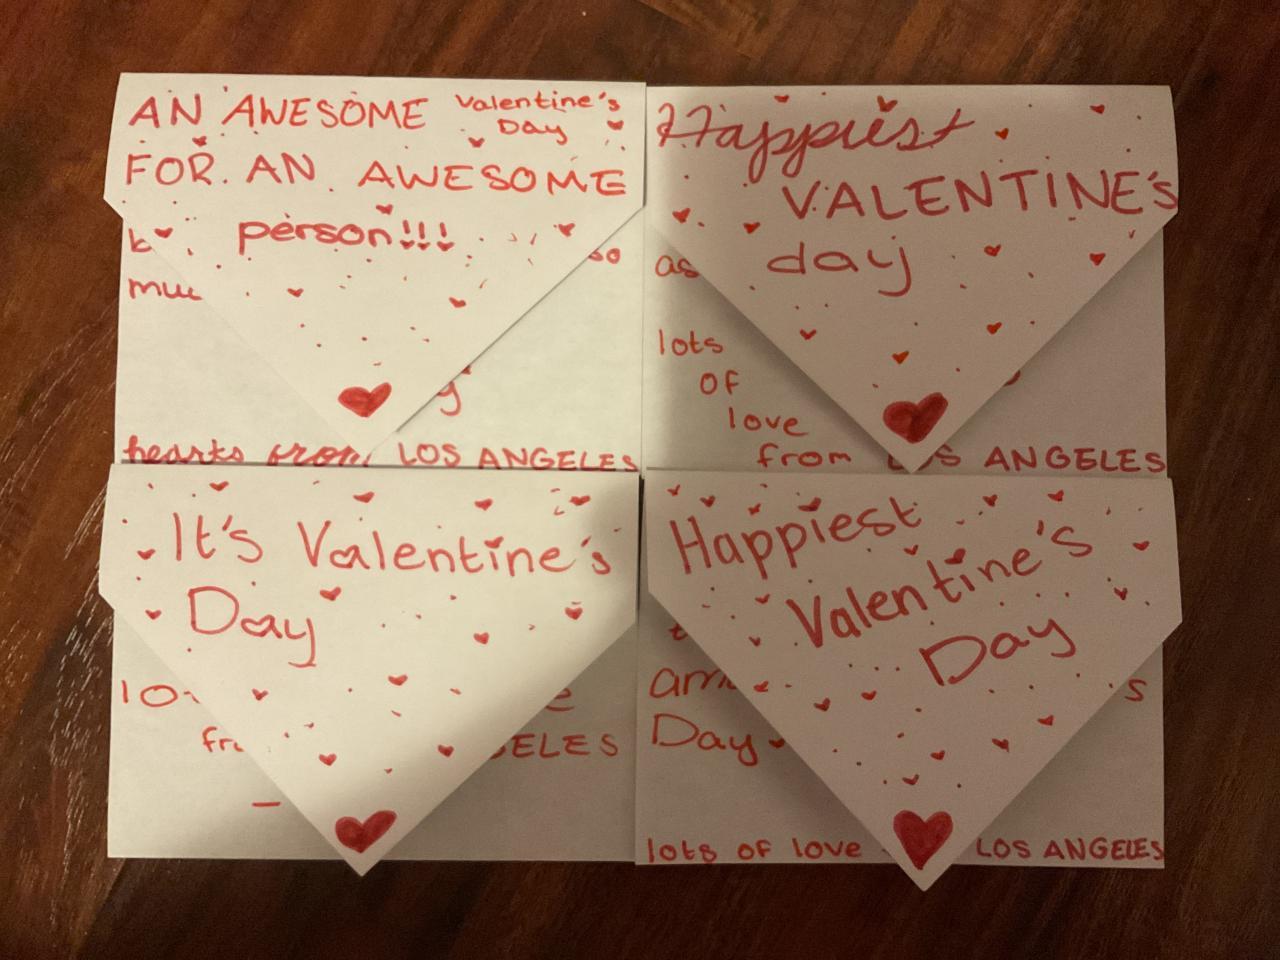 AN AWESOME Valentine's
Day
FOR AN AWESOME
person!!!
so
hearts from LOS ANGELES
Happiest
VALENTINE'S
day
as
lots
OF
love
from LOS ANGELES
It's Valentine's
Day
Happiest
Valentine's
Day
Day
lots OF love LOS ANGELES